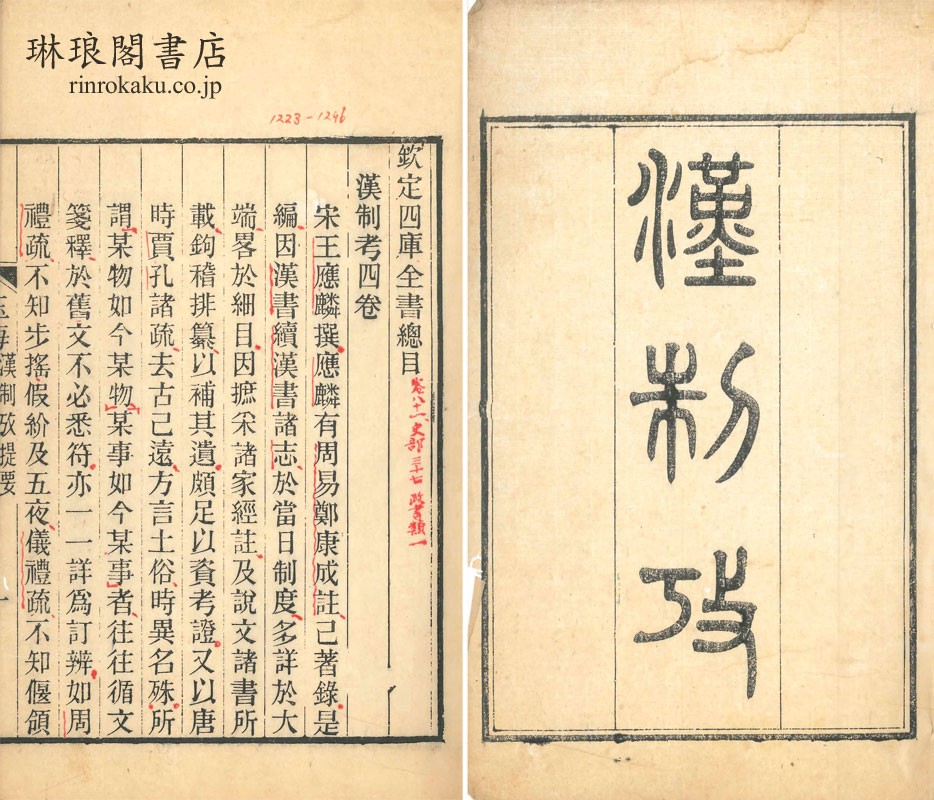 漢制攷
琳琅閣書店
rinrokaku.co.jp
1223-1246
欽定四庫全書總目 卷八十一 史部三十七 政書類一
漢制考四卷
宋王應麟撰應麟有周易鄭康成註己著錄是
編因漢書續漢書諸志於當日制度多詳於大
端畧於細目因摭采諸家經註及說文諸書所
載鉤稽排纂以補其遺頗足以資考證又以唐
時賈孔諸疏去古己遠方言土俗時異名殊所
謂某物如今某物某事如今某事者往往循文
箋釋於舊文不必悉符亦一一詳爲訂辨如周
禮疏不知步搖假紛及五夜儀禮疏不知偃領
玉海漢制攷提要 一